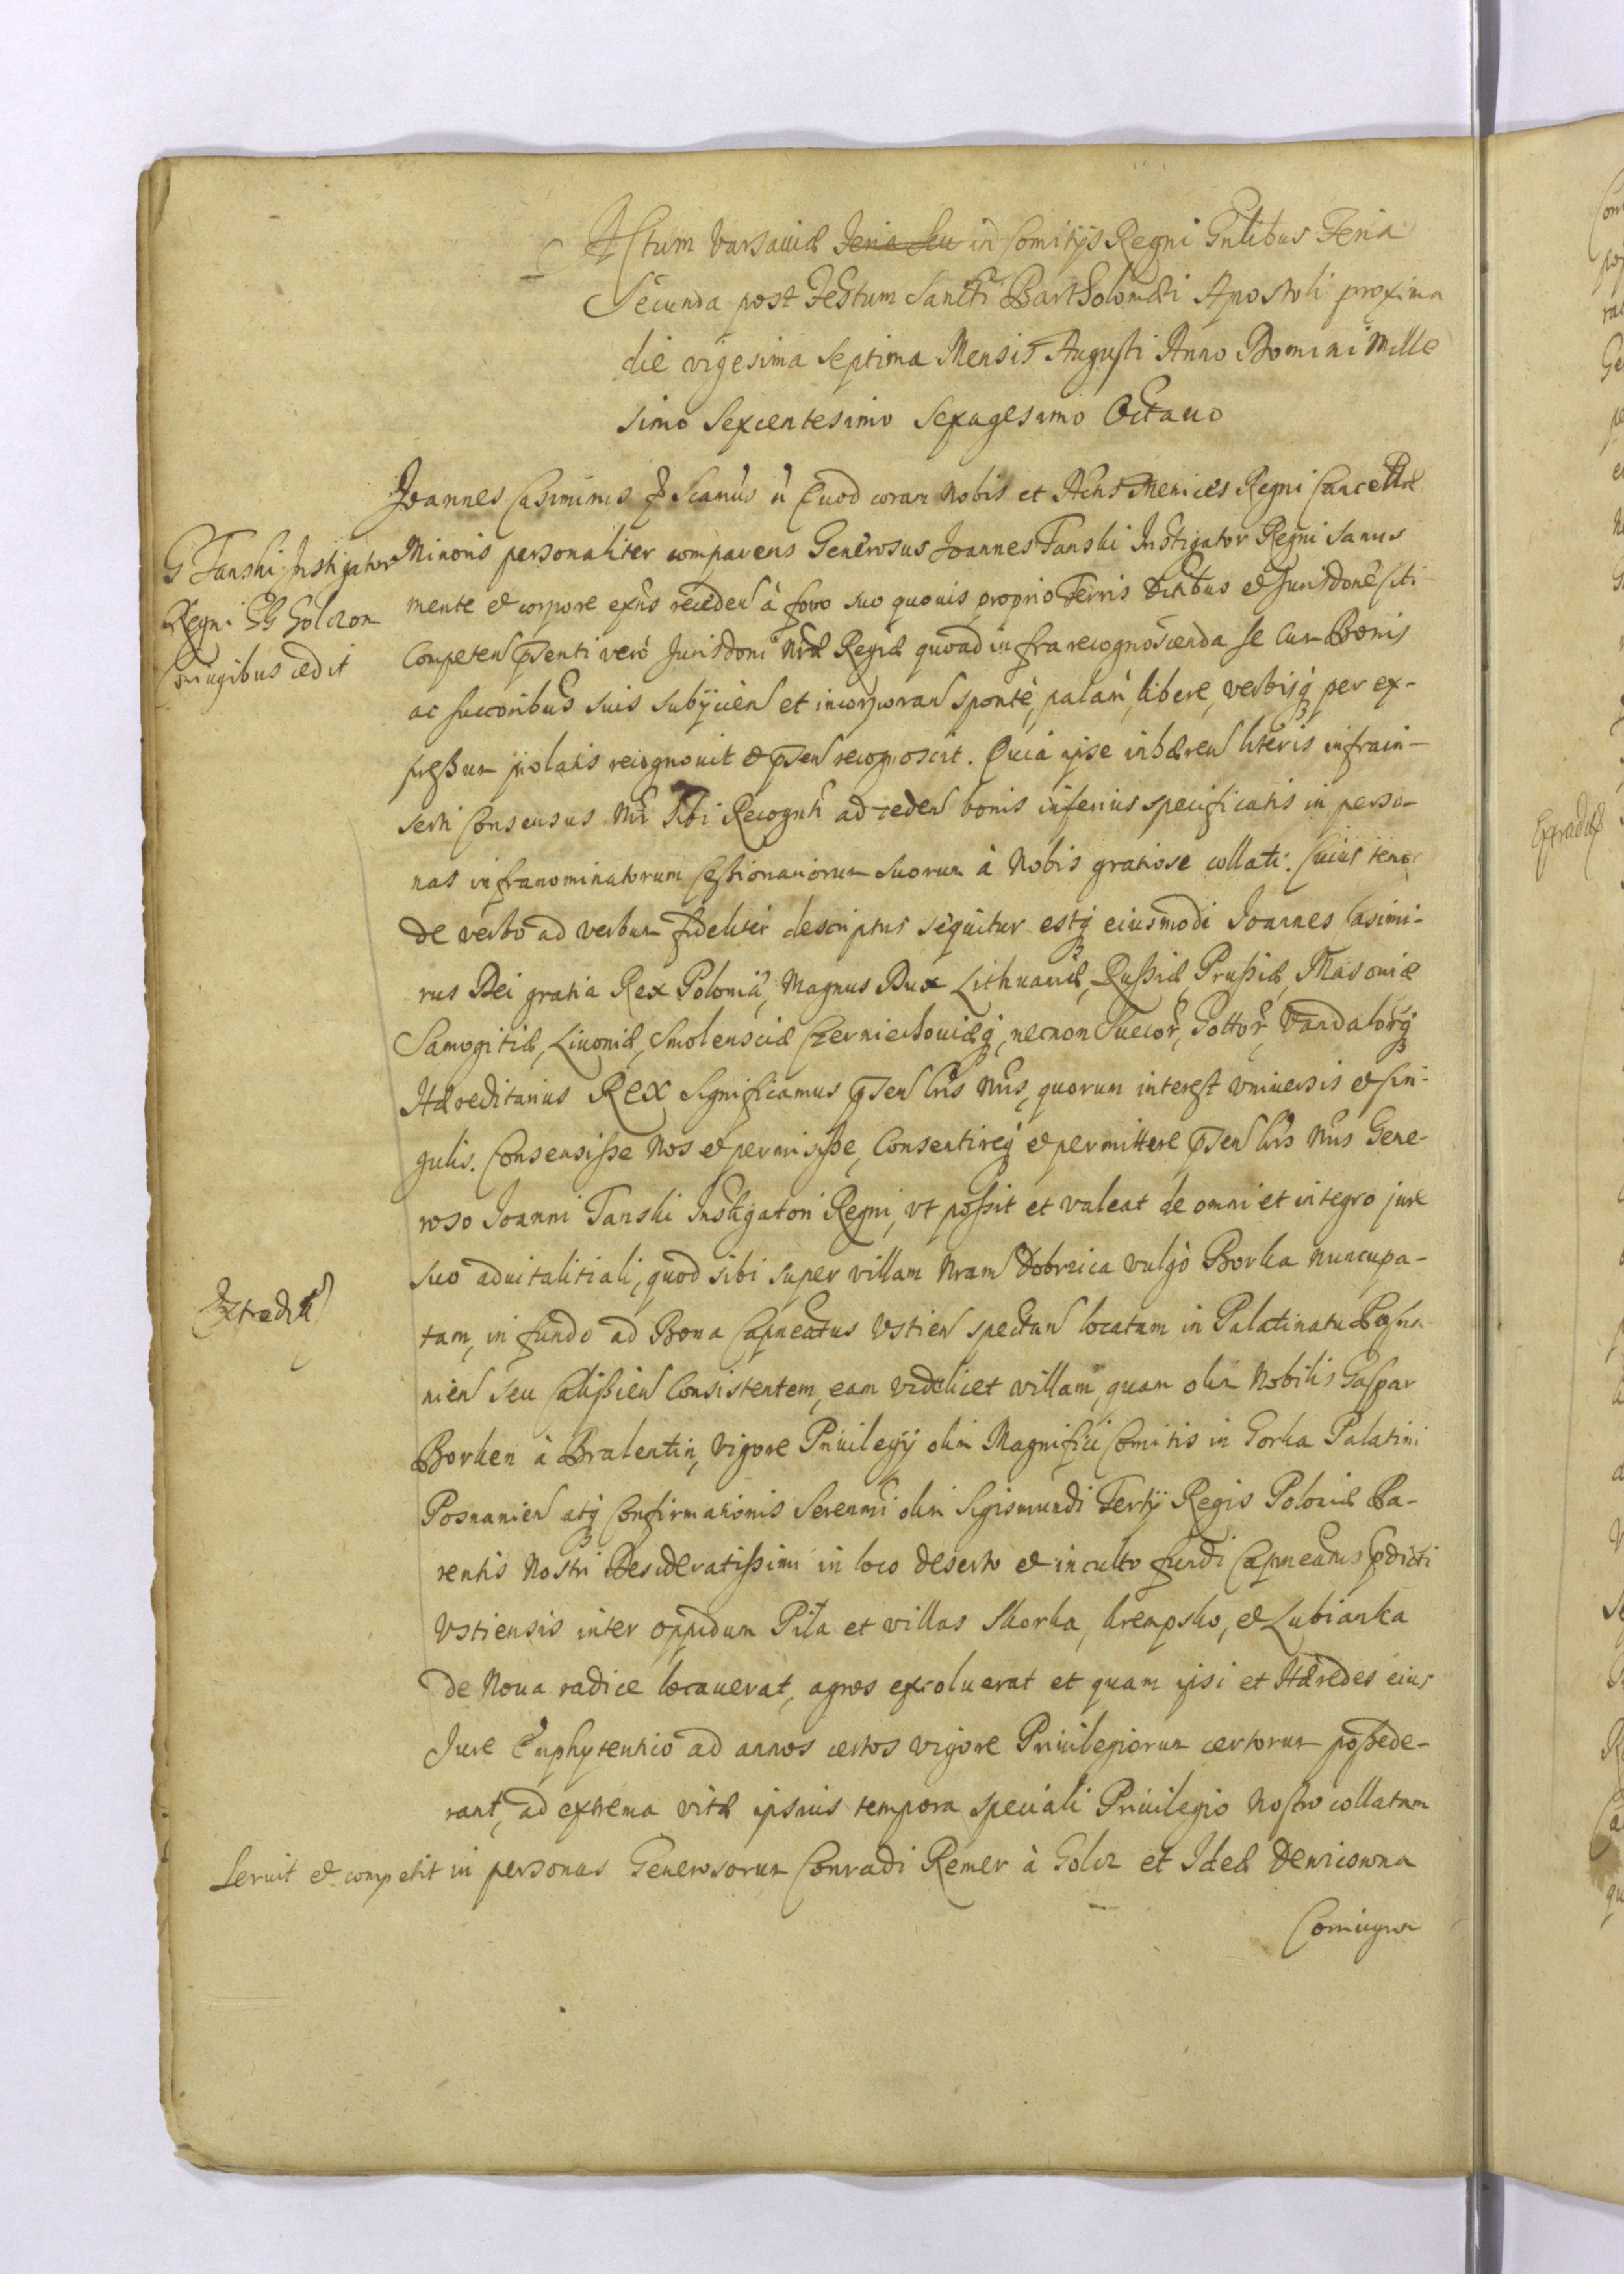 Actum Varsaviæ Feria Secu in Comitijs Regni Gnlibus Feria
Secunda post Festum Sancti Bartholomæi Apostoli proxima
die vigesima septima Mensis Augusti Anno Domini Mille
simo Sexcentesimo Sexagesimo Octauo
Joannes Casimirus Quod coram Nobis et Actis Regni Cancellæ
G Tanski Instigator
Regni GG Golczon
Coniugibus cedit
Minoris personaliter comparens Generosus Joannes Tanski Instigator Regni sanus
mente et corpore exns receden à foro suo quouis proprio Terris et Jurisdone sibi
Competen psenti verò Jurisdoni Nræ Regiæ quoad infra recognoscenda se Cum Bonis
ac succoribus suis subijcien et incorporan sponte, palam, libere, verbisq per ex-
pressum recognouit et psen recognoscit. Quia ipse inhæren literis infrain-
serti Consensus Nri sibi Recognti ad ceden bonis inferius specificatis in perso-
nas infranominatorum Cessionariorum suorum à Nobis gratiose collati. Cuius tenor
de verbo ad verbum fideliter descriptus sequitur estq eiusmodi Joannes Casimi-
rus Dei gratia Rex Poloniæ, Magnus Dux Lithuaniæ, Russiæ, Prussiæ, Masouiæ
Samogitiæ, Liuoniæ, Smolensciæ Czerniechouiæq, necnon Suecor, Gottor, Vandalorq
Hæreditarius REX Significamus psen lris Nris, quorum interest vniuersis et sin-
gulis. Consensisse Nos et permisisse, Consentireq et permittere psen lris Nris Gene-
roso Joanni Tanski Instigatori Regni, vt possit et valeat de omni et integro jure
suo aduitalitiali, quod sibi super villam Nram Dobrzica vulgò Borka nuncupa-
Extradit
tam, in fundo ad Bona Capneatus Vstien spectan locatam in Palatinatu Posna-
nien seu Calissien Consistentem, eam videlicet villam, quam olim Nobilis Gaspar
Borken à Bralentin, vigore Priuilegij olim Magnifici Comitis in Gorka Palatini
Posnanien atq Confirmationis Serenmi olim Sigismundi Tertij Regis Poloniæ Pa-
rentis Nostri Desideratissimi in loco deserto et inculto fundi Capneatus pdicti
Vstiensis inter oppidum Piła et villas Skorka, krempsko, et Lubianka
de Noua radice locauerat, agros excoluerat et quam ipsi et Hæredes eius
Jure Emphyteutico ad annos certos vigore Priuilegiorum certorum possede-
rant, ad extrema vitæ ipsius tempora speciali Priuilegio Nostro collatam
seruit et competit in personas Generosorum Conradi Remer à Golcz et Idæ Denicowna
Coniugum